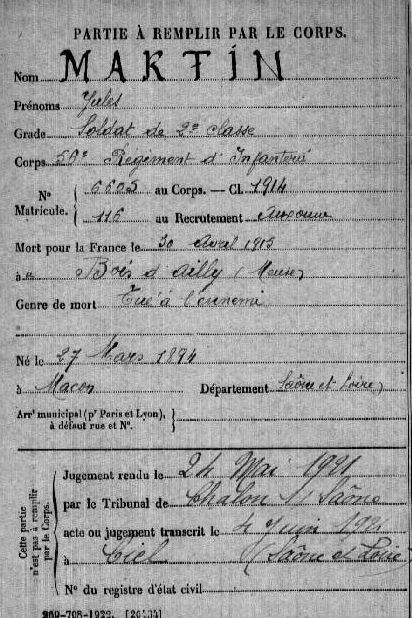 PARTIE À REMPLIR PAR LE CORPS.
Nom MARTIN
Prénoms Jules
Grade Soldat de 2e classe
Corps 56e Régiment d'Infanterie
N° Matricule. { 6605 au Corps. — Cl. 1914
116 au Recrutement Auxonne
Mort pour la France le 30 Avril 1915
à Bois d'Ailly (Meuse)
Genre de mort Tué à l'ennemi
Né le 27 Mars 1894
à Macon Département Saône et Loire
Arrt municipal (pr Paris et Lyon), à défaut rue et N°. }
Cette partie n'est pas à remplir par le Corps.
Jugement rendu le 24 Mai 1921
par le Tribunal de Chalon s/ Saône
acte ou jugement transcrit le 4 Juin 1921
à Ciel (Saône et Loire)
N° du registre d'état civil